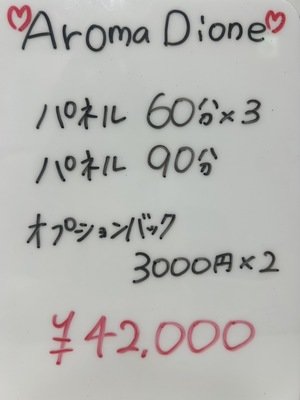 Aroma Dione
パネル 60分×3
パネル 90分
オプションバック
3000円×2
¥42,000